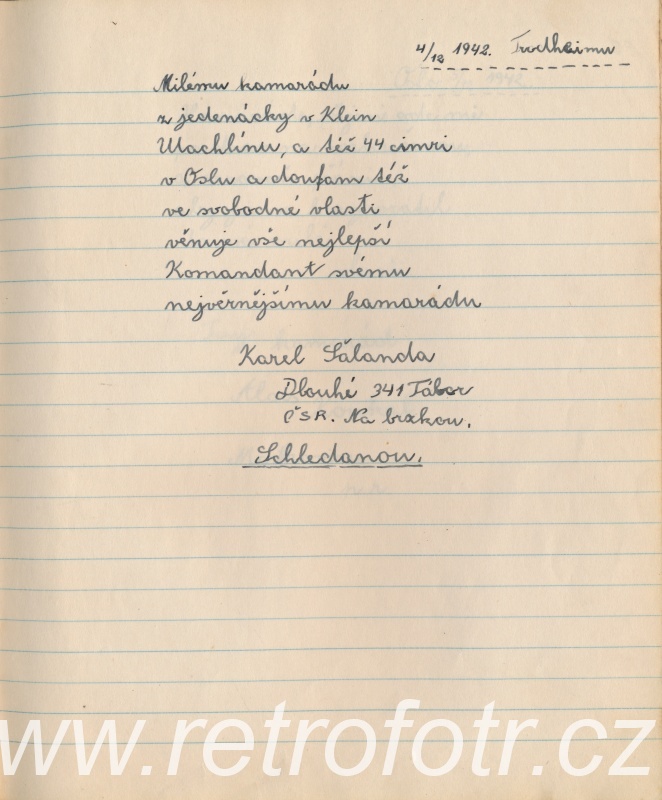 4/12 1942. Trvdheimu
Milému kamarádu
z jedenácky v Klein
Machlínu, a též 44 cimri
v Oslu a doufam též
ve svobodné vlasti
věnuje vše nejlepší
Komandant svému
nejvěrnějšímu kamarádu
Karel Šalanda
Dlouhé 341 Tábor
ČSR. Na brzkou.
Schledanou.
www.retrofotr.cz